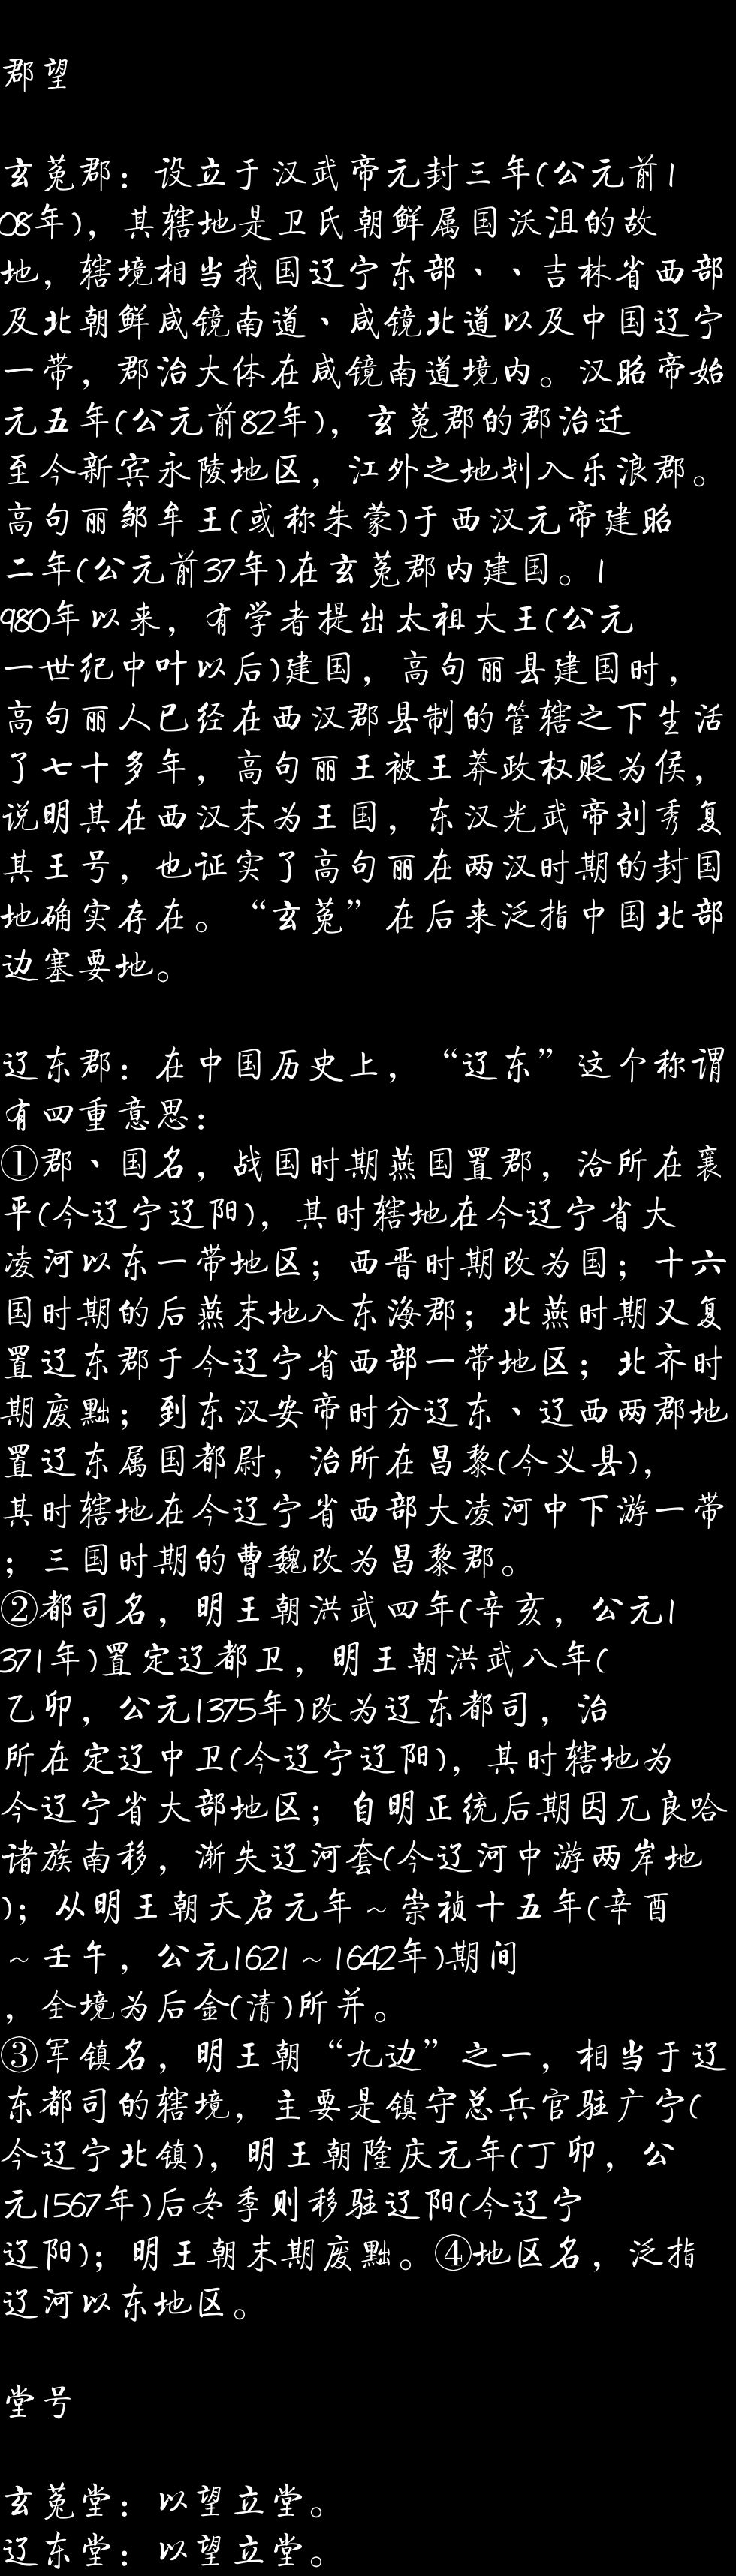 郡望
玄菟郡：设立于汉武帝元封三年(公元前1
08年)，其辖地是卫氏朝鲜属国沃沮的故
地，辖境相当我国辽宁东部、、吉林省西部
及北朝鲜咸镜南道、咸镜北道以及中国辽宁
一带，郡治大体在咸镜南道境内。汉昭帝始
元五年(公元前82年)，玄菟郡的郡治迁
至今新宾永陵地区，江外之地划入乐浪郡。
高句丽邹牟王(或称朱蒙)于西汉元帝建昭
二年(公元前37年)在玄菟郡内建国。1
980年以来，有学者提出太祖大王(公元
一世纪中叶以后)建国，高句丽县建国时，
高句丽人已经在西汉郡县制的管辖之下生活
了七十多年，高句丽王被王莽政权贬为侯，
说明其在西汉末为王国，东汉光武帝刘秀复
其王号，也证实了高句丽在两汉时期的封国
地确实存在。“玄菟”在后来泛指中国北部
边塞要地。
辽东郡：在中国历史上，“辽东”这个称谓
有四重意思：
①郡、国名，战国时期燕国置郡，洽所在襄
平(今辽宁辽阳)，其时辖地在今辽宁省大
凌河以东一带地区；西晋时期改为国；十六
国时期的后燕末地入东海郡；北燕时期又复
置辽东郡于今辽宁省西部一带地区；北齐时
期废黜；到东汉安帝时分辽东、辽西两郡地
置辽东属国都尉，治所在昌黎(今义县)，
其时辖地在今辽宁省西部大凌河中下游一带
；三国时期的曹魏改为昌黎郡。
②都司名，明王朝洪武四年(辛亥，公元1
371年)置定辽都卫，明王朝洪武八年(
乙卯，公元1375年)改为辽东都司，治
所在定辽中卫(今辽宁辽阳)，其时辖地为
今辽宁省大部地区；自明正统后期因兀良哈
诸族南移，渐失辽河套(今辽河中游两岸地
)；从明王朝天启元年～崇祯十五年(辛酉
～壬午，公元1621～1642年)期间
，全境为后金(清)所并。
③军镇名，明王朝“九边”之一，相当于辽
东都司的辖境，主要是镇守总兵官驻广宁(
今辽宁北镇)，明王朝隆庆元年(丁卯，公
元1567年)后冬季则移驻辽阳(今辽宁
辽阳)；明王朝末期废黜。④地区名，泛指
辽河以东地区。
堂号
玄菟堂：以望立堂。
辽东堂：以望立堂。